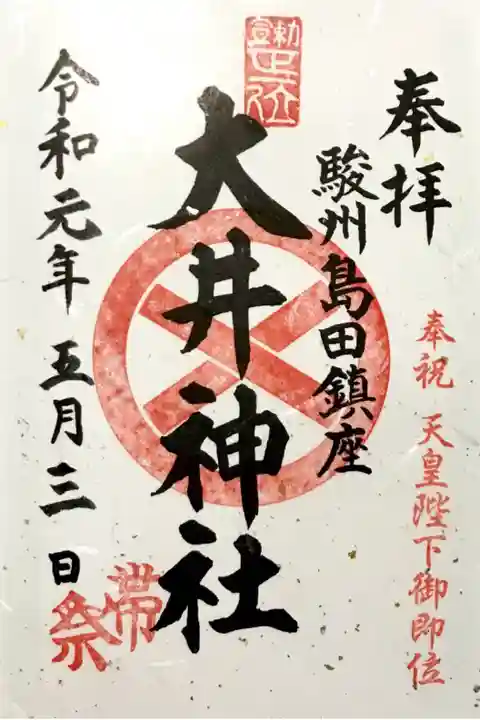 奉拝
奉祝 天皇陛下御即位
駿州島田鎮座
大井神社
令和元年五月三日
帯祭